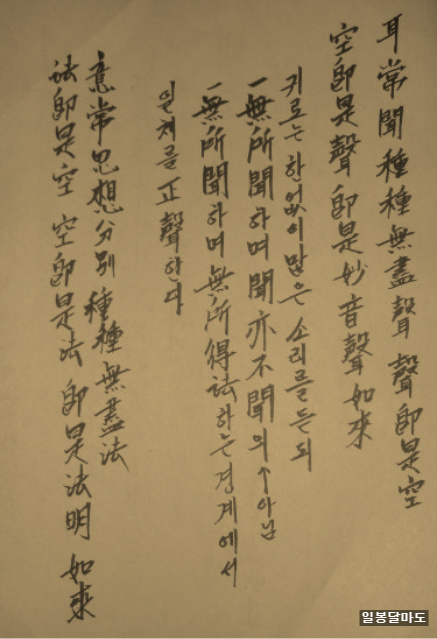 耳常聞種種無盡聲 聲卽是空
空卽是聲 卽是妙音聲如來
귀로는 한없이 많은 소리를 듣되
一無所聞하며 聞亦不聞의 아님
一無所聞하며 無所得法하는 경계에서
일체를 正聲한다
意常思想分別 種種無盡法
法卽是空 空卽是法 卽是法明 如來
일봉달마도